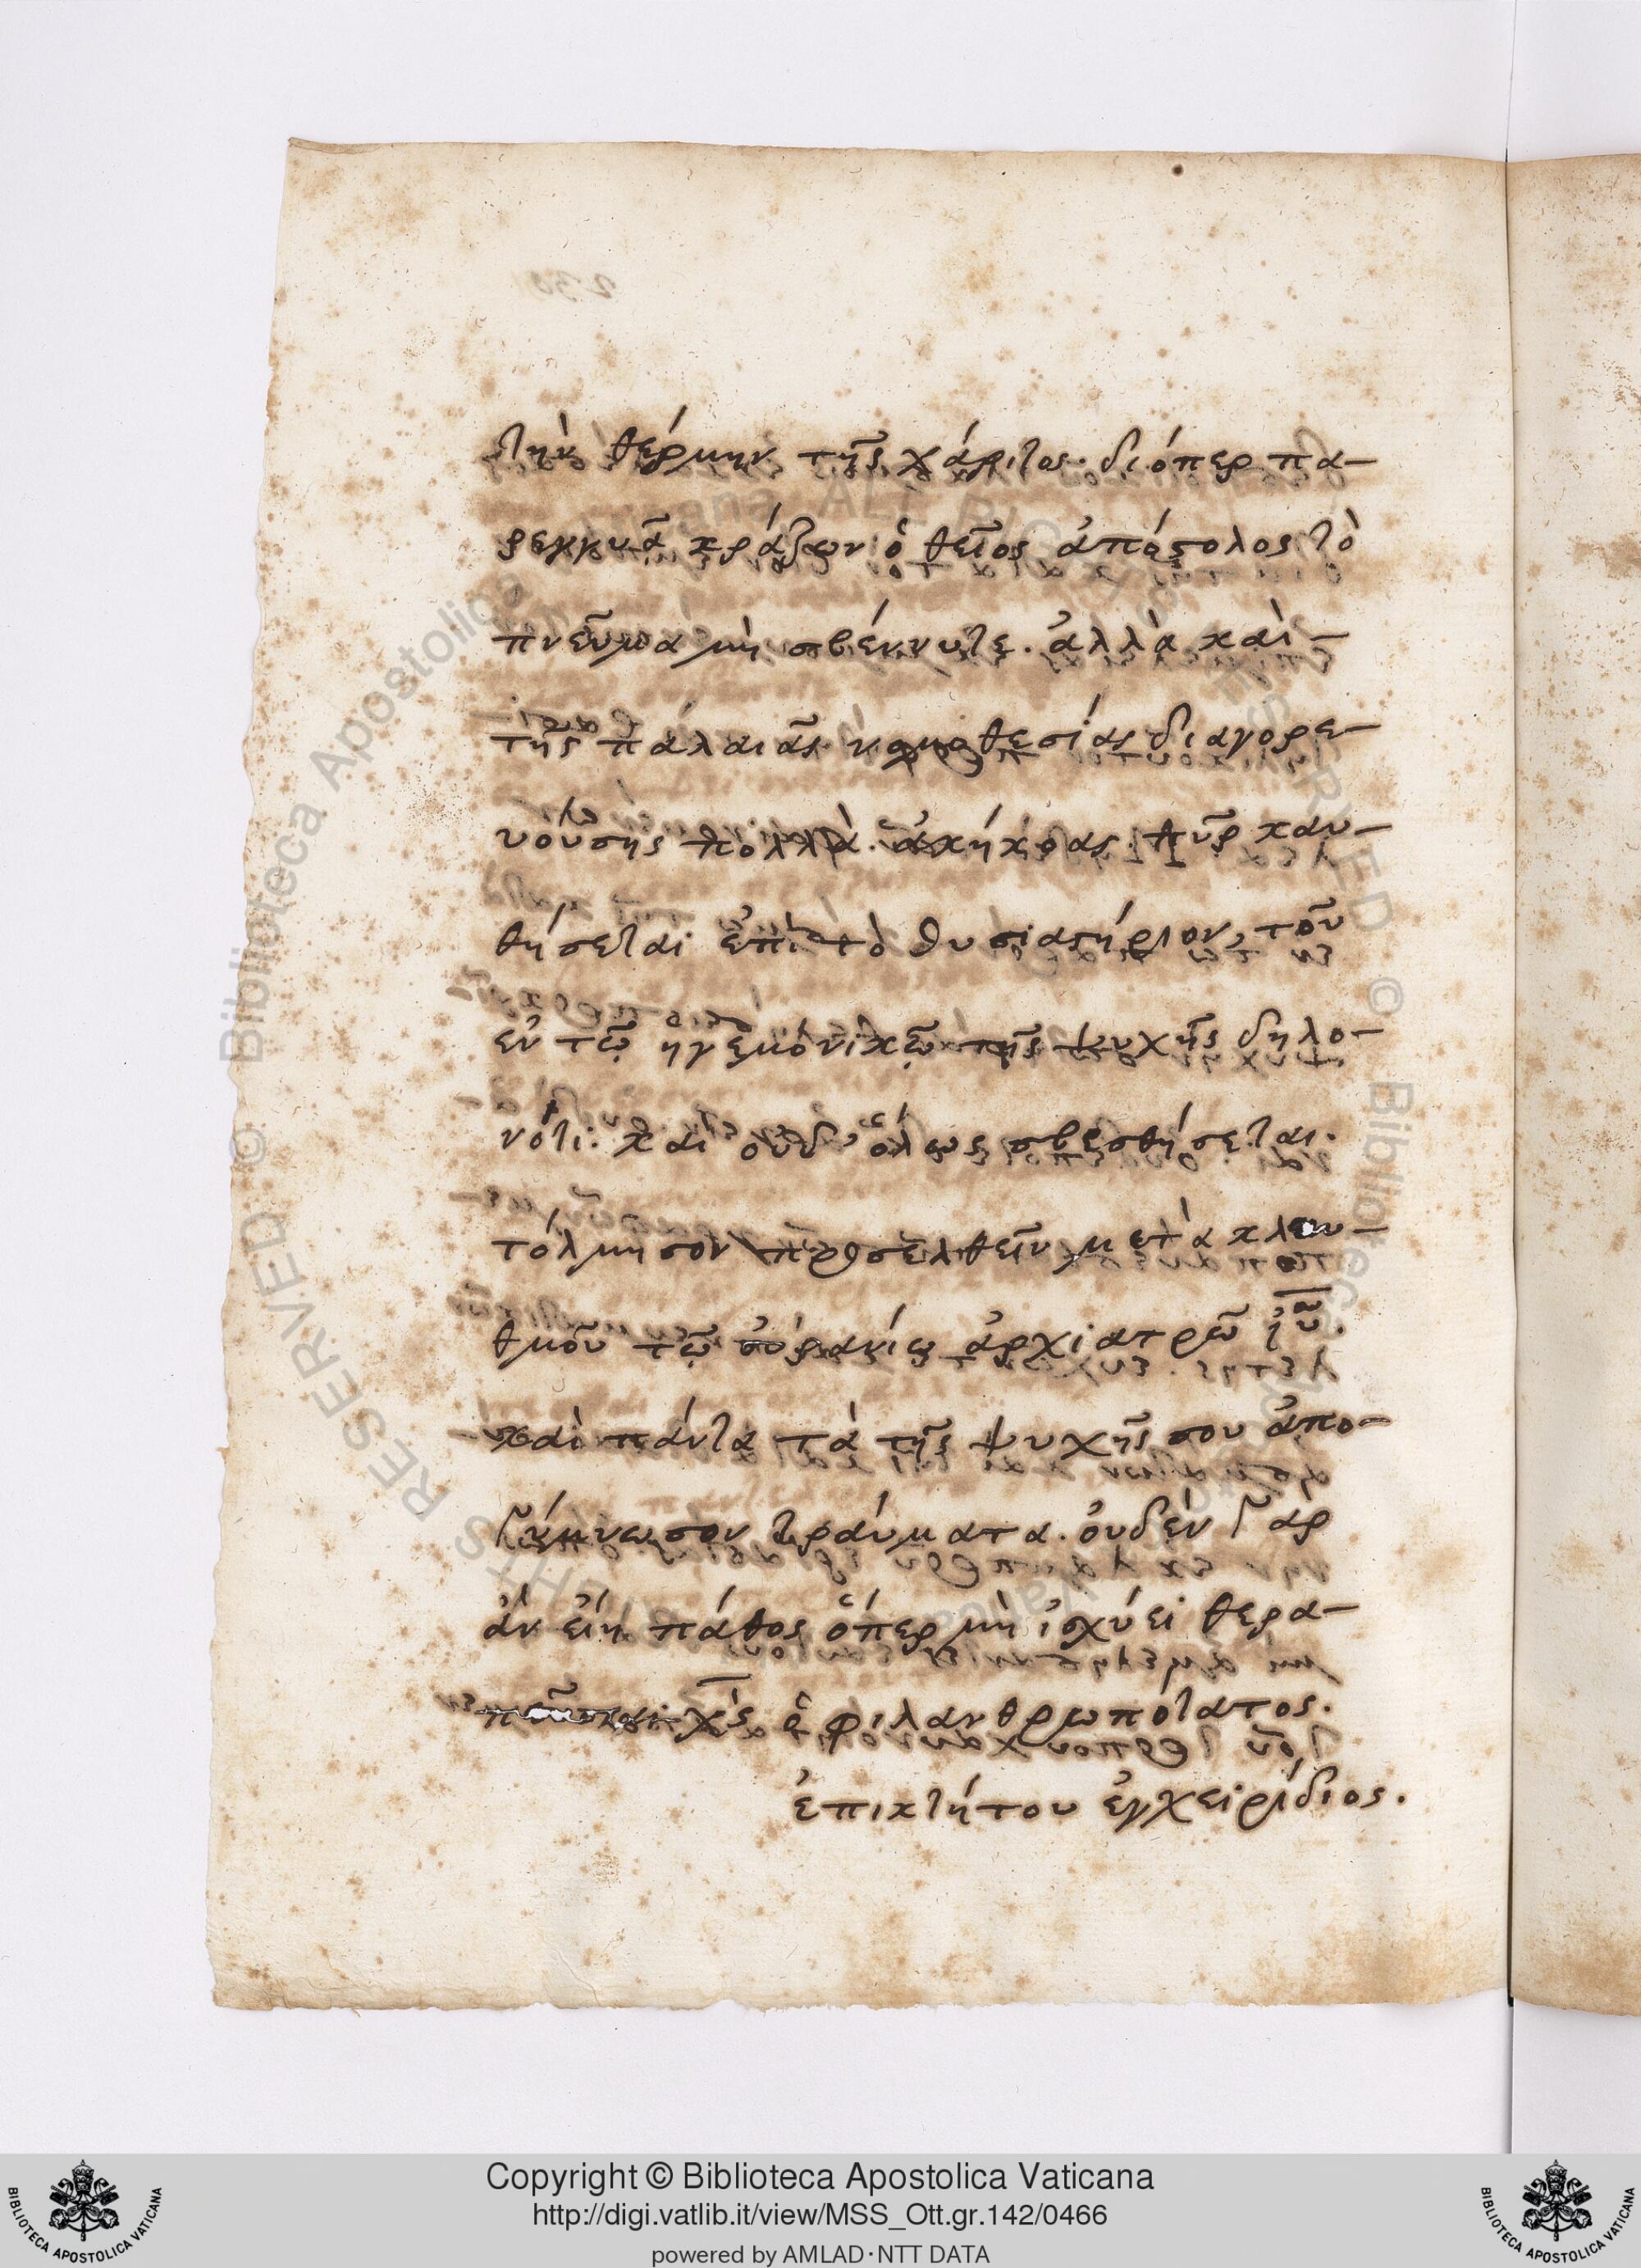 τὴν θέρμην τῆς χάριτος· διόπερ πα-
ρεγγυᾶ κράζων ὁ θεῖος ἀπόστολος τὸ
πνεῦμα μὴ σβέννυτε. ἀλλὰ καὶ-
τῆς παλαιᾶς νομοθεσίας διαγορε-
υούσης πολλὰ. ἀκήκοας. πῦρ καυ-
θήσεται ἐπὶ τὸ θυσιαστήριον, τοῦ
ἐν τῶ ἡγεμονικῶ τῆς ψυχῆς δηλο-
νότι. καὶ οὐδ' ὅλως σβεσθήσεται.
τόλμησον προσελθεῖν μετὰ κλαυ-
θμοῦ τῶ οὐρανίω ἀρχιατρῶ ἰῦ.
καὶ πάντα τὰ τῆς ψυχῆς σου ἀπο-
γύμνωσον τραύματα. οὐδὲν γὰρ
ἂν εἴη πάθος ὅπερ μὴ ἰσχύει θερα-
πεῦσαι χς ὁ φιλανθρωπότατος.
ἐπικτήτου ἐγχειρίδιος.
Copyright © Biblioteca Apostolica Vaticana
http://digi.vatlib.it/view/MSS_Ott.gr.142/0466
powered by AMLAD·NTT DATA
BIBLIOTECA APOSTOLICA VATICANA
BIBLIOTECA APOSTOLICA VATICANA